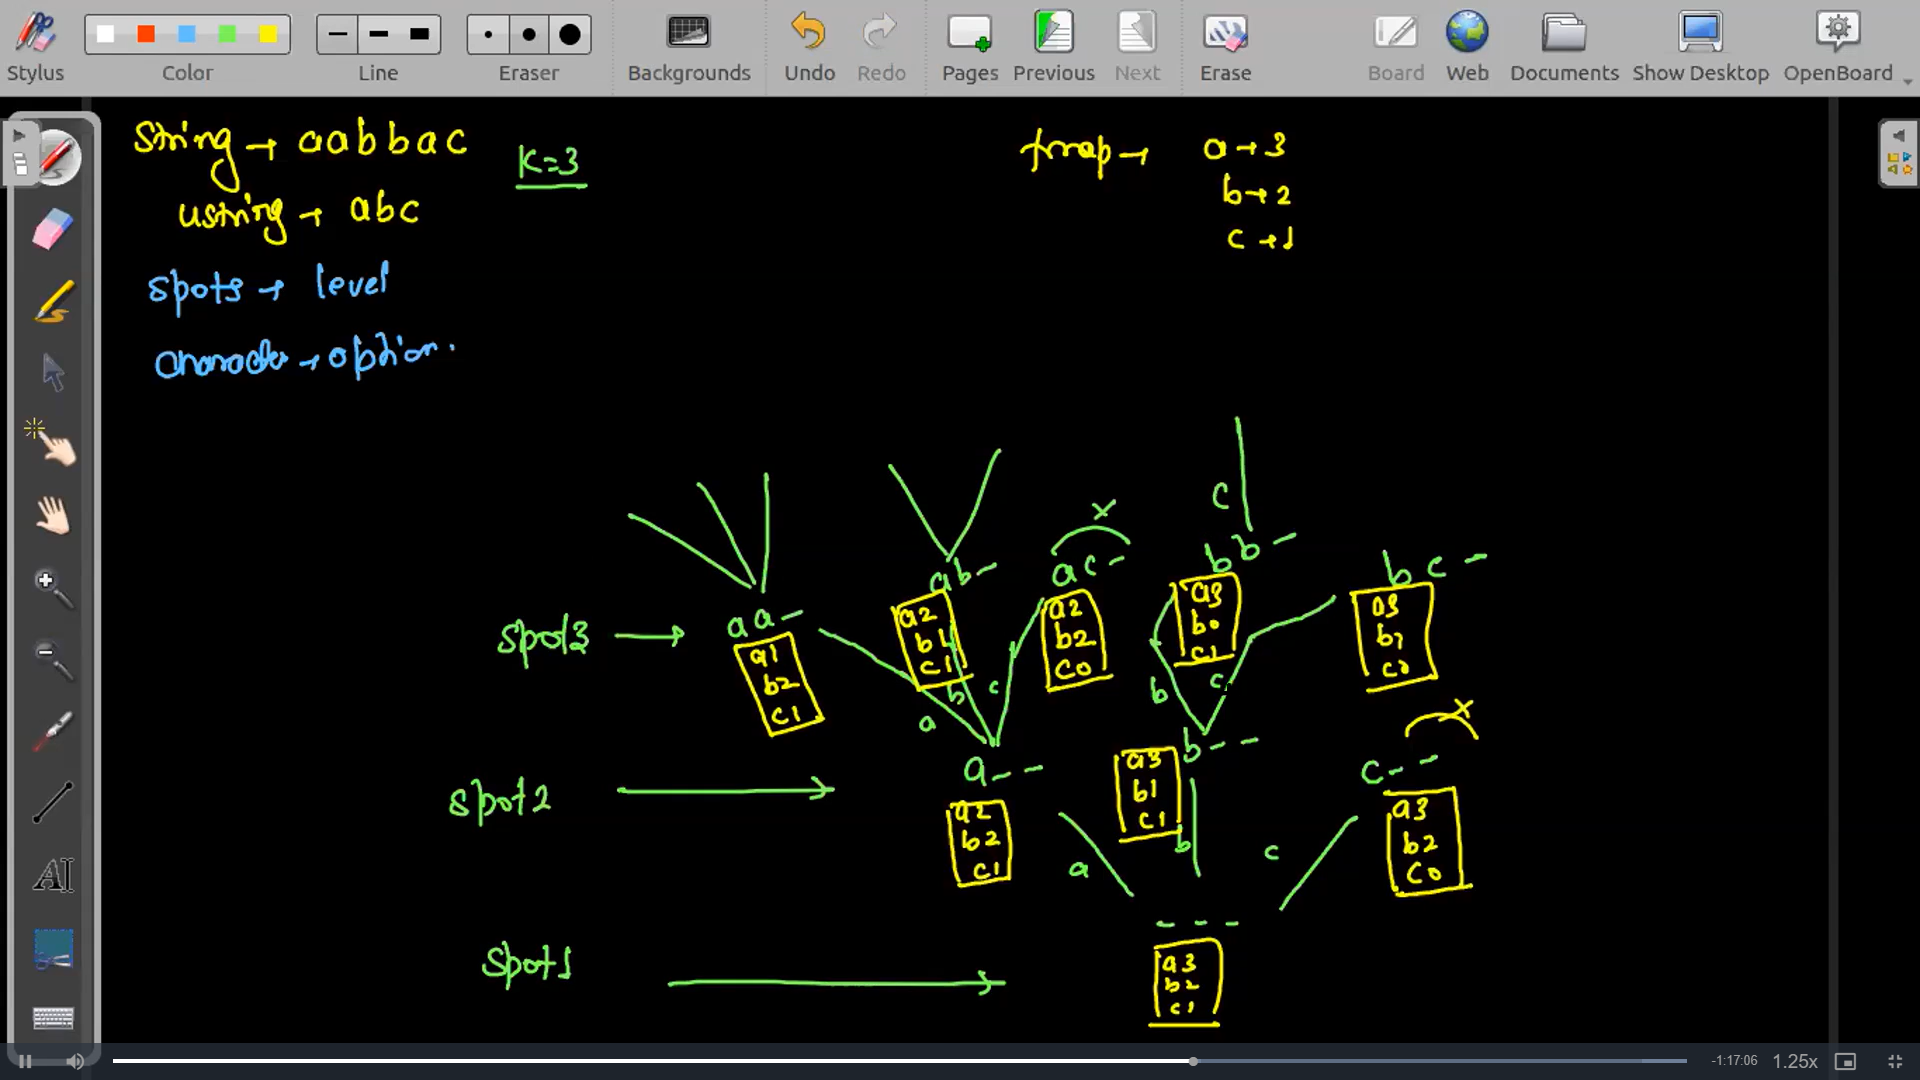 Stylus
Color
Line
Eraser
Backgrounds
Undo
Redo
Pages
Previous
Next
Erase
Board
Web
Documents
Show Desktop
OpenBoard
String → aabbac
K=3
fmap → a → 3
b → 2
c → 1
ustring → abc
spots → level
character → option.
c
x
bb-
ab-
ac-
bc-
aa-
spot3
a1
b2
c1
a2
b1
c1
a2
b2
c0
a3
b0
c1
a3
b1
c0
a
b
c
b
c
x
spot2
a--
b--
c--
a2
b2
c1
a3
b1
c1
a3
b2
c0
a
b
c
---
spot1
a3
b2
c1
-1:17:06
1.25x